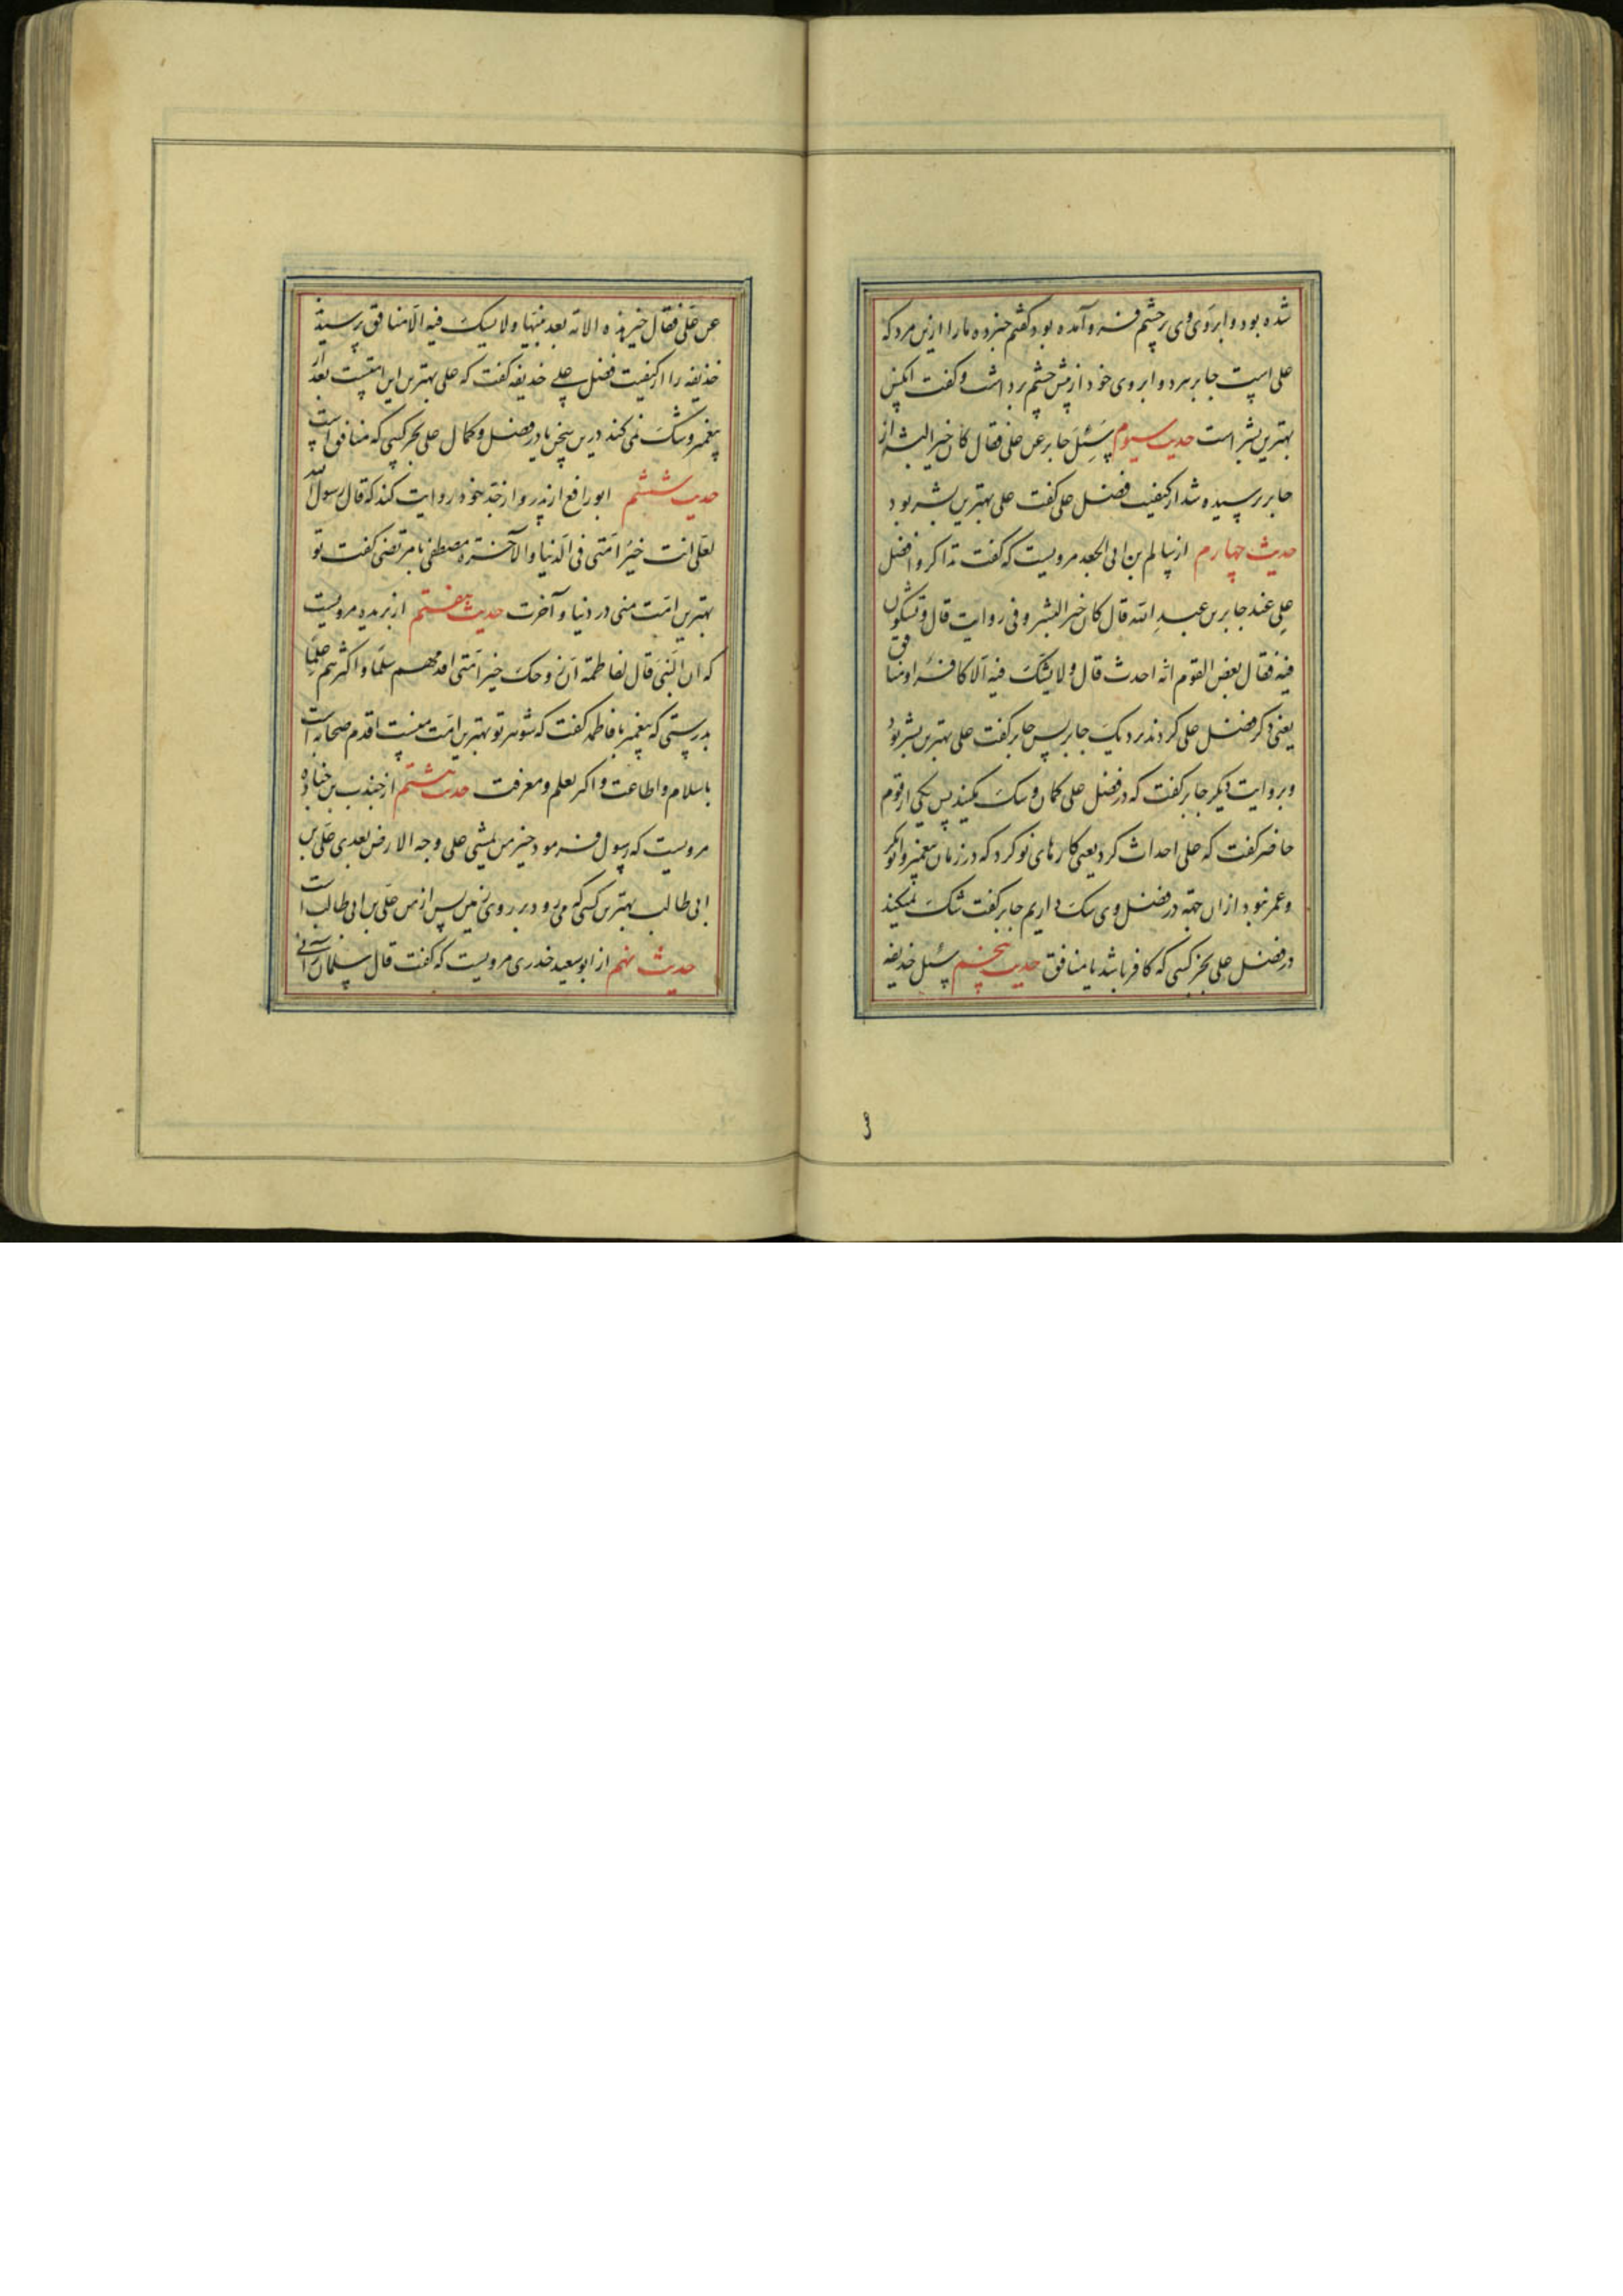 شده بود و ابروی وی بر چشم فرو آمده بود گفتم خبر ده ما را ازین مرد که
علی است جابر هر دو ابروی خود از پیش چشم برداشت و گفت آنکس
بهترین بشر است حدیث سیوم سئل جابر عن علی فقال کان خیر البشر از
جابر پرسیده شد از کیفیت فضل علی گفت علی بهترین بشر بود
حدیث چهارم از سالم بن ابی الجعد مرویست که گفت تذاکروا فضل
علی عند جابر بن عبد الله قال کان خیر البشر و فی روایت قال و تشکون
فیه فقال بعض القوم انه احدث قال و لا یشک فیه الا کافر او منافق
یعنی ذکر فضل علی کردند نزدیک جابر پس جابر گفت علی بهترین بشر بود
و بروایت دیکر جابر گفت که در فضل علی کمان و شک میکنید پس یکی از قوم
حاضر گفت که علی احداث کرد یعنی کارهای نو کرد که در زمان پیغمبر و ابوبکر
و عمر نبود از آن جهة در فضل وی شک داریم جابر گفت شک نمیکند
در فضل علی بجز کسی که کافر باشد یا منافق حدیث پنجم سئل حذیفه
عن علی فقال خیر هذه الامة بعد نبیها و لا یشک فیه الا منافق پرسیدند
حذیفه را از کیفیت فضل علی حذیفه گفت که علی بهترین این امتست بعد از
پیغمبر و شک نمی کند درین سخن یا در فضل و کمال علی بجز کسی که منافق است
حدیث ششم ابورافع از پدر و از جد خود روایت کند که قال رسول الله
لعلی انت خیر امتی فی الدنیا و الآخرة مصطفی با مرتضی گفت تو
بهترین امت منی در دنیا و آخرت حدیث هفتم از بریده مرویست
که ان النبی قال لفاطمة ان زوجک خیر امتی اقدمهم سلما و اکثرهم علما
بدرستی که پیغمبر با فاطمه گفت که شوهر تو بهترین امت منست اقدم صحابه است
باسلام و اطاعت و اکثر بعلم و معرفت حدیث هشتم از جندب بن جناده
مرویست که رسول فرمود خیر من یمشی علی وجه الارض بعدی علی بن
ابی طالب بهترین کسی که می رود بر روی زمین پس از من علی بن ابی طالب است
حدیث نهم از ابو سعید خدری مرویست که گفت قال سلمان رآنی